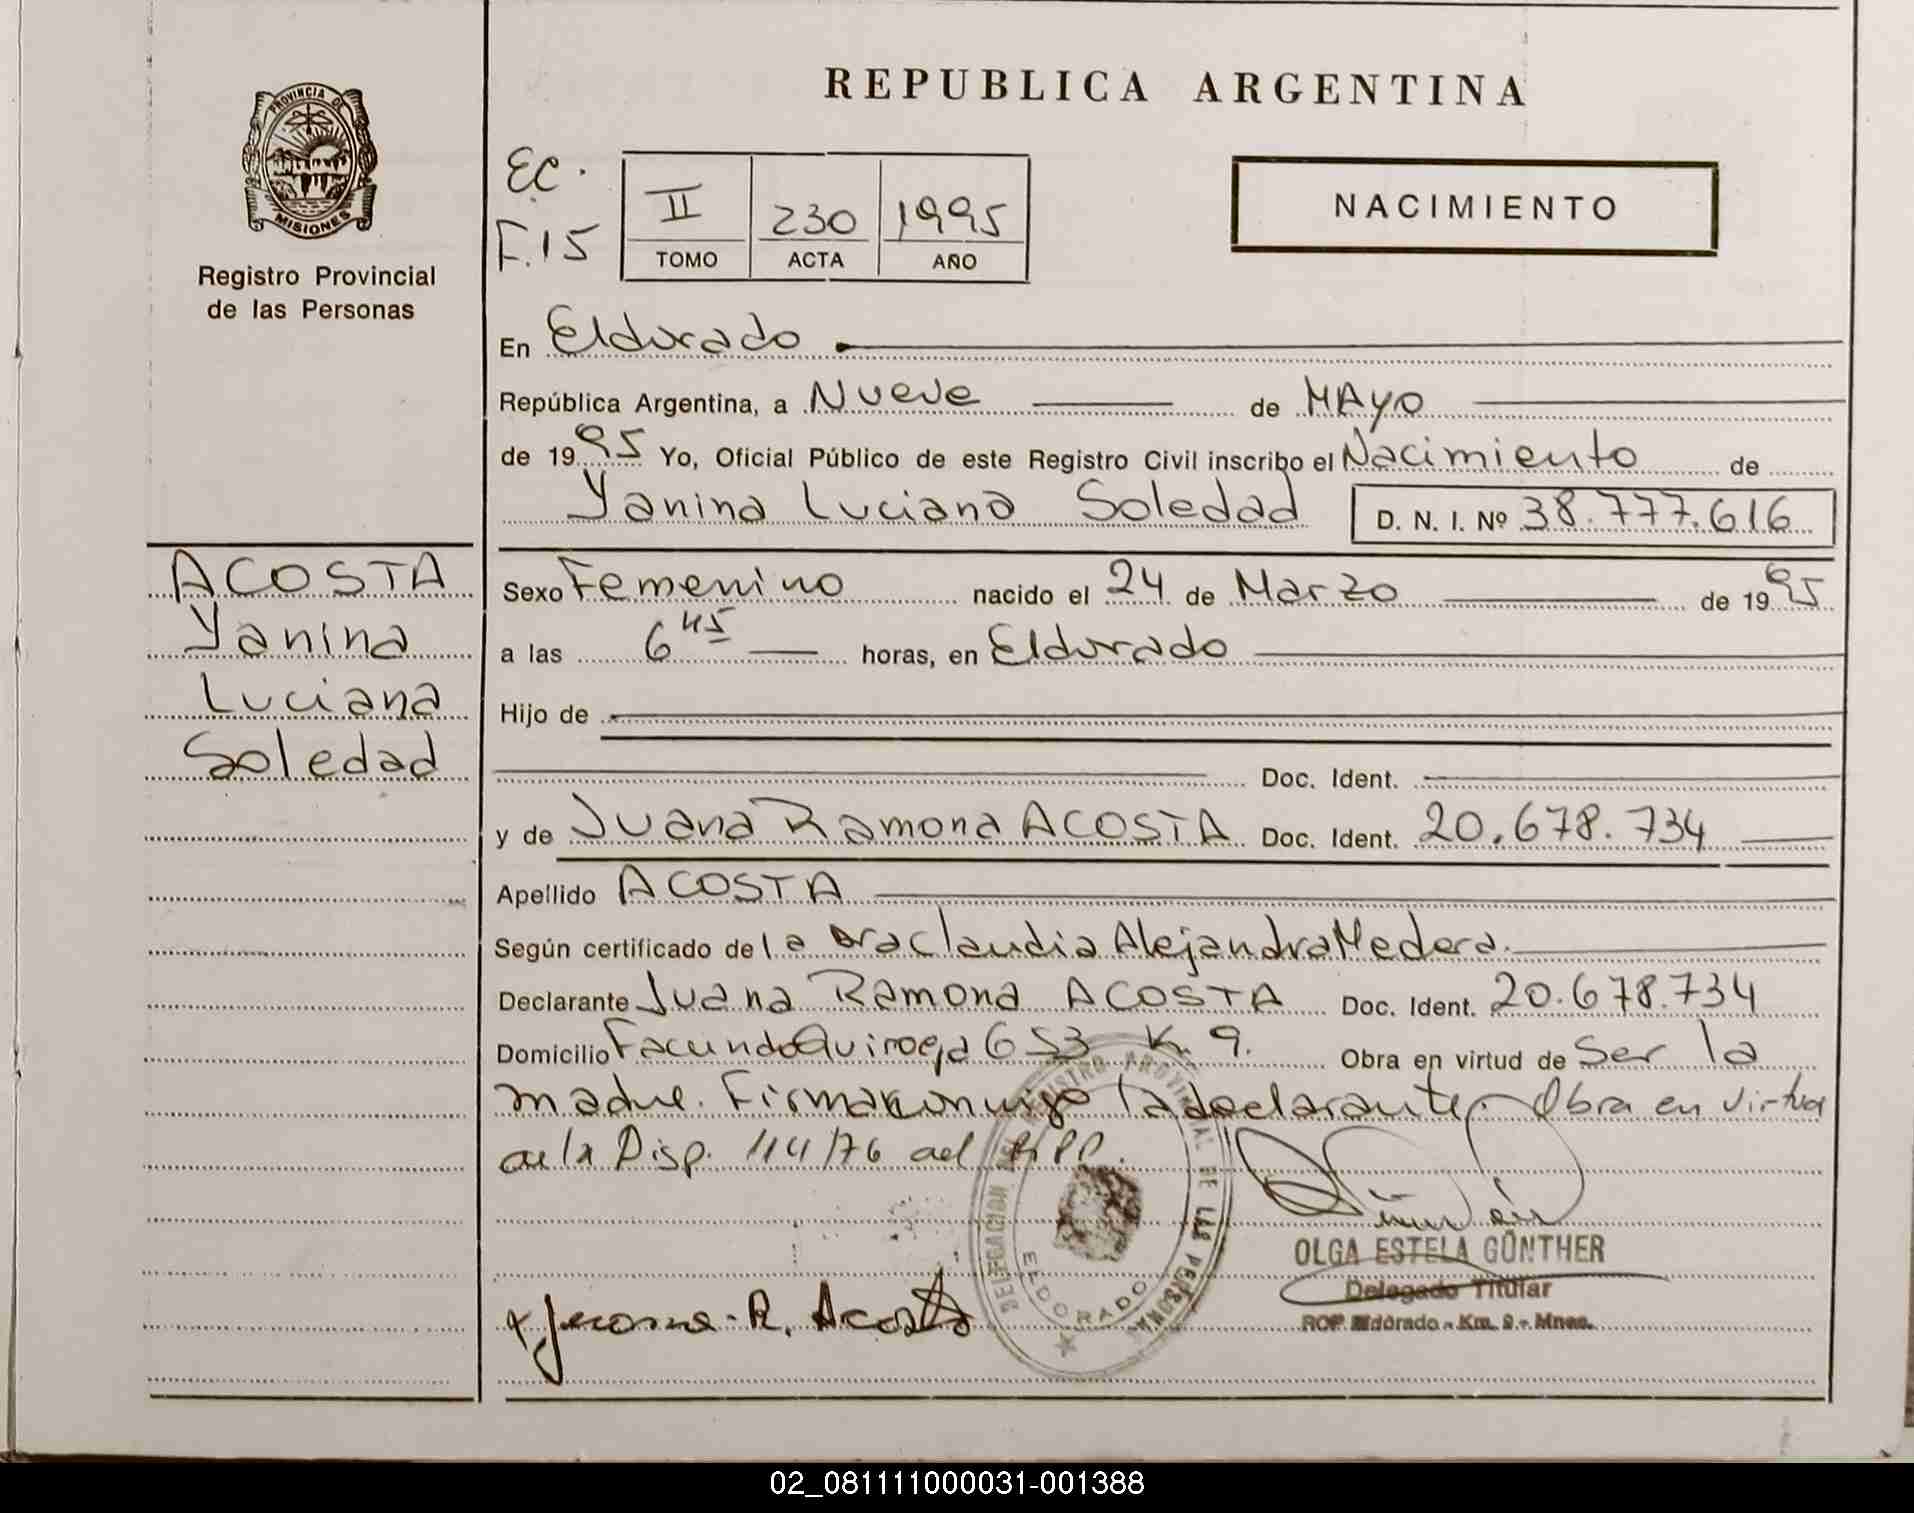 REPUBLICA ARGENTINA
PROVINCIA DE MISIONES
Registro Provincial
de las Personas
EC.
F.15
II 230 1995
TOMO ACTA AÑO
NACIMIENTO
En Eldorado
República Argentina, a Nueve de MAYO
de 1995 Yo, Oficial Público de este Registro Civil inscribo el Nacimiento de
Yanina Luciana Soledad D. N. I. Nº 38.777.616
ACOSTA
Yanina
Luciana
Soledad
Sexo Femenino nacido el 24 de Marzo de 1995
a las 6 45 horas, en Eldorado
Hijo de
Doc. Ident.
y de Juana Ramona ACOSTA Doc. Ident. 20.678.734
Apellido ACOSTA
Según certificado de la Dra Claudia Alejandra Medera.
Declarante Juana Ramona ACOSTA Doc. Ident. 20.678.734
Domicilio Facundo Quiroga 653 K. 9. Obra en virtud de Ser la
madre. Firma conmigo la declarante. Obra en virtud
de la Disp. 114/76 del
DELEGACION DEL REGISTRO PROVINCIAL DE LAS PERSONAS
ELDORADO
OLGA ESTELA GÜNTHER
Delegado Titular
RPP Eldorado - Km. 9 - Mnes.
R. Acosta
02_081111000031-001388